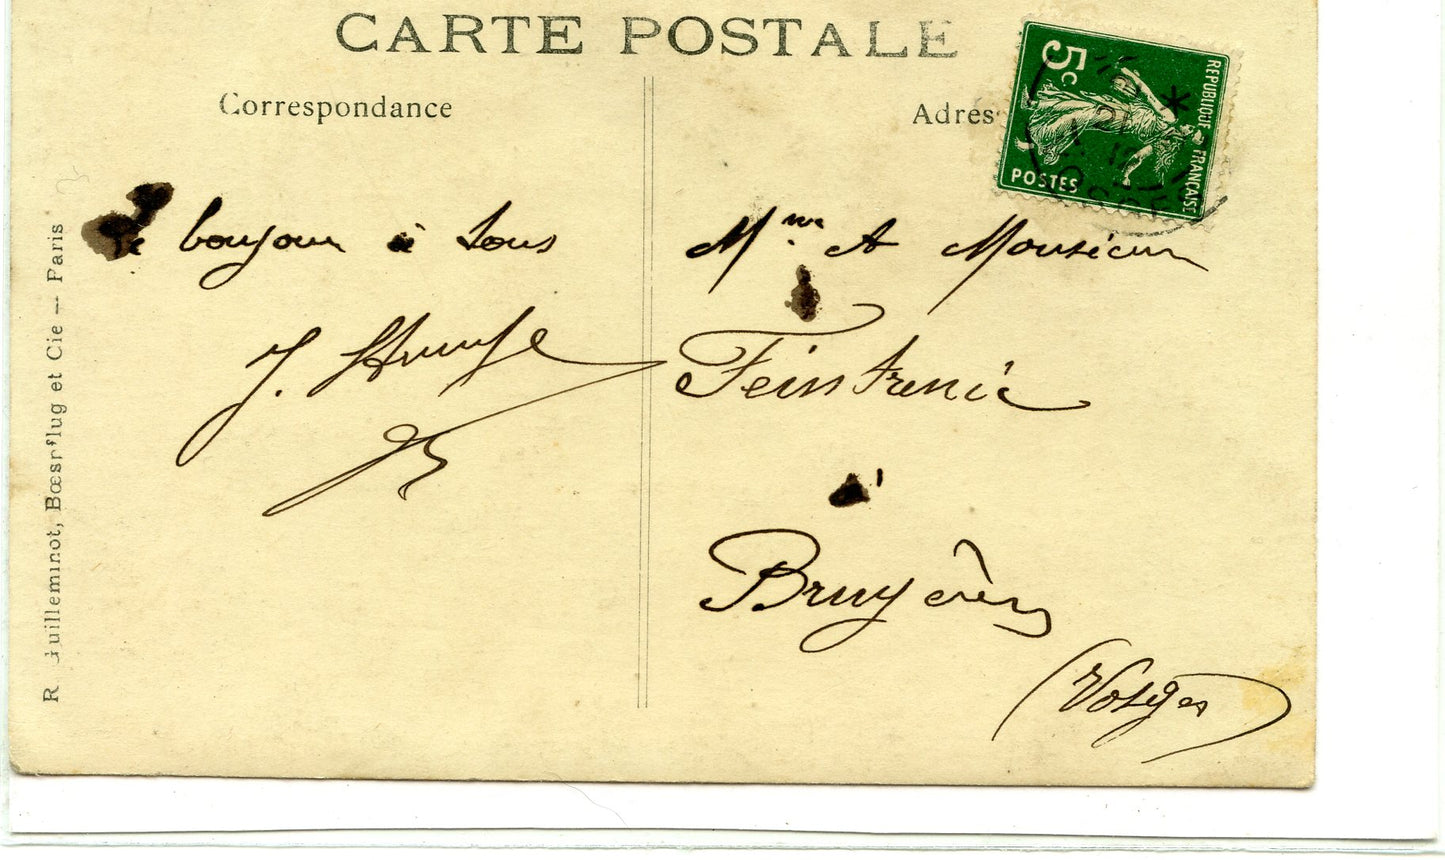 CARTE POSTALE
Correspondance
Adres
5c
REPUBLIQUE FRANÇAISE
POSTES
bonjour à tous
J.
Mme et Monsieur
Feintrenie
à
Bruyères
(Vosges)
R. Guilleminot, Bœspflug et Cie — Paris